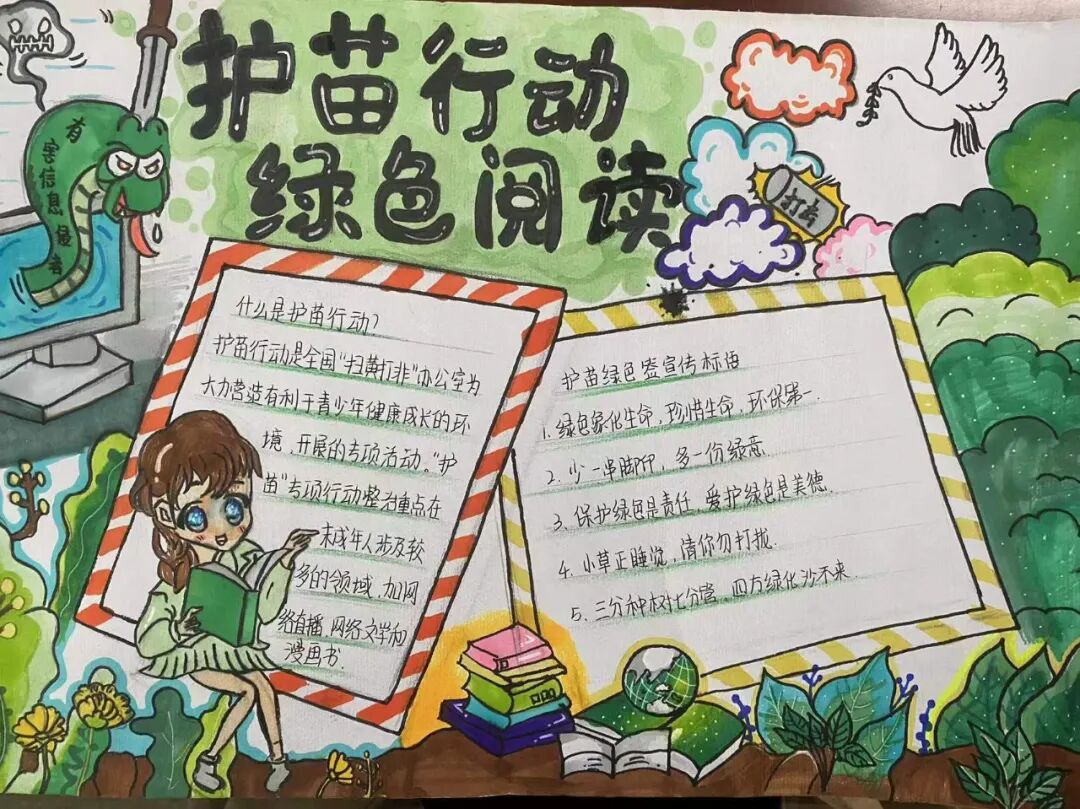 护苗行动
绿色阅读
有害信息最毒
打击
什么是护苗行动?
护苗行动是全国"扫黄打非"办公室为
大力营造有利于青少年健康成长的环
境、开展的专项活动。"护
苗"专项行动整治重点在
未成年人涉及较
多的领域,加网
络直播、网络文学和
漫画书.
护苗绿色签宣传标语
1. 绿色绿化生命,珍惜生命,环保第一.
2. 少一串脚印,多一份绿意.
3. 保护绿色是责任,爱护绿色是美德.
4. 小草正睡觉,请你勿打扰.
5. 三分种树七分管,四方绿化沙不来.